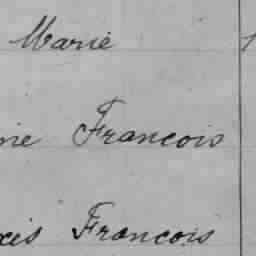 Marie
ne Francois
cis Francois